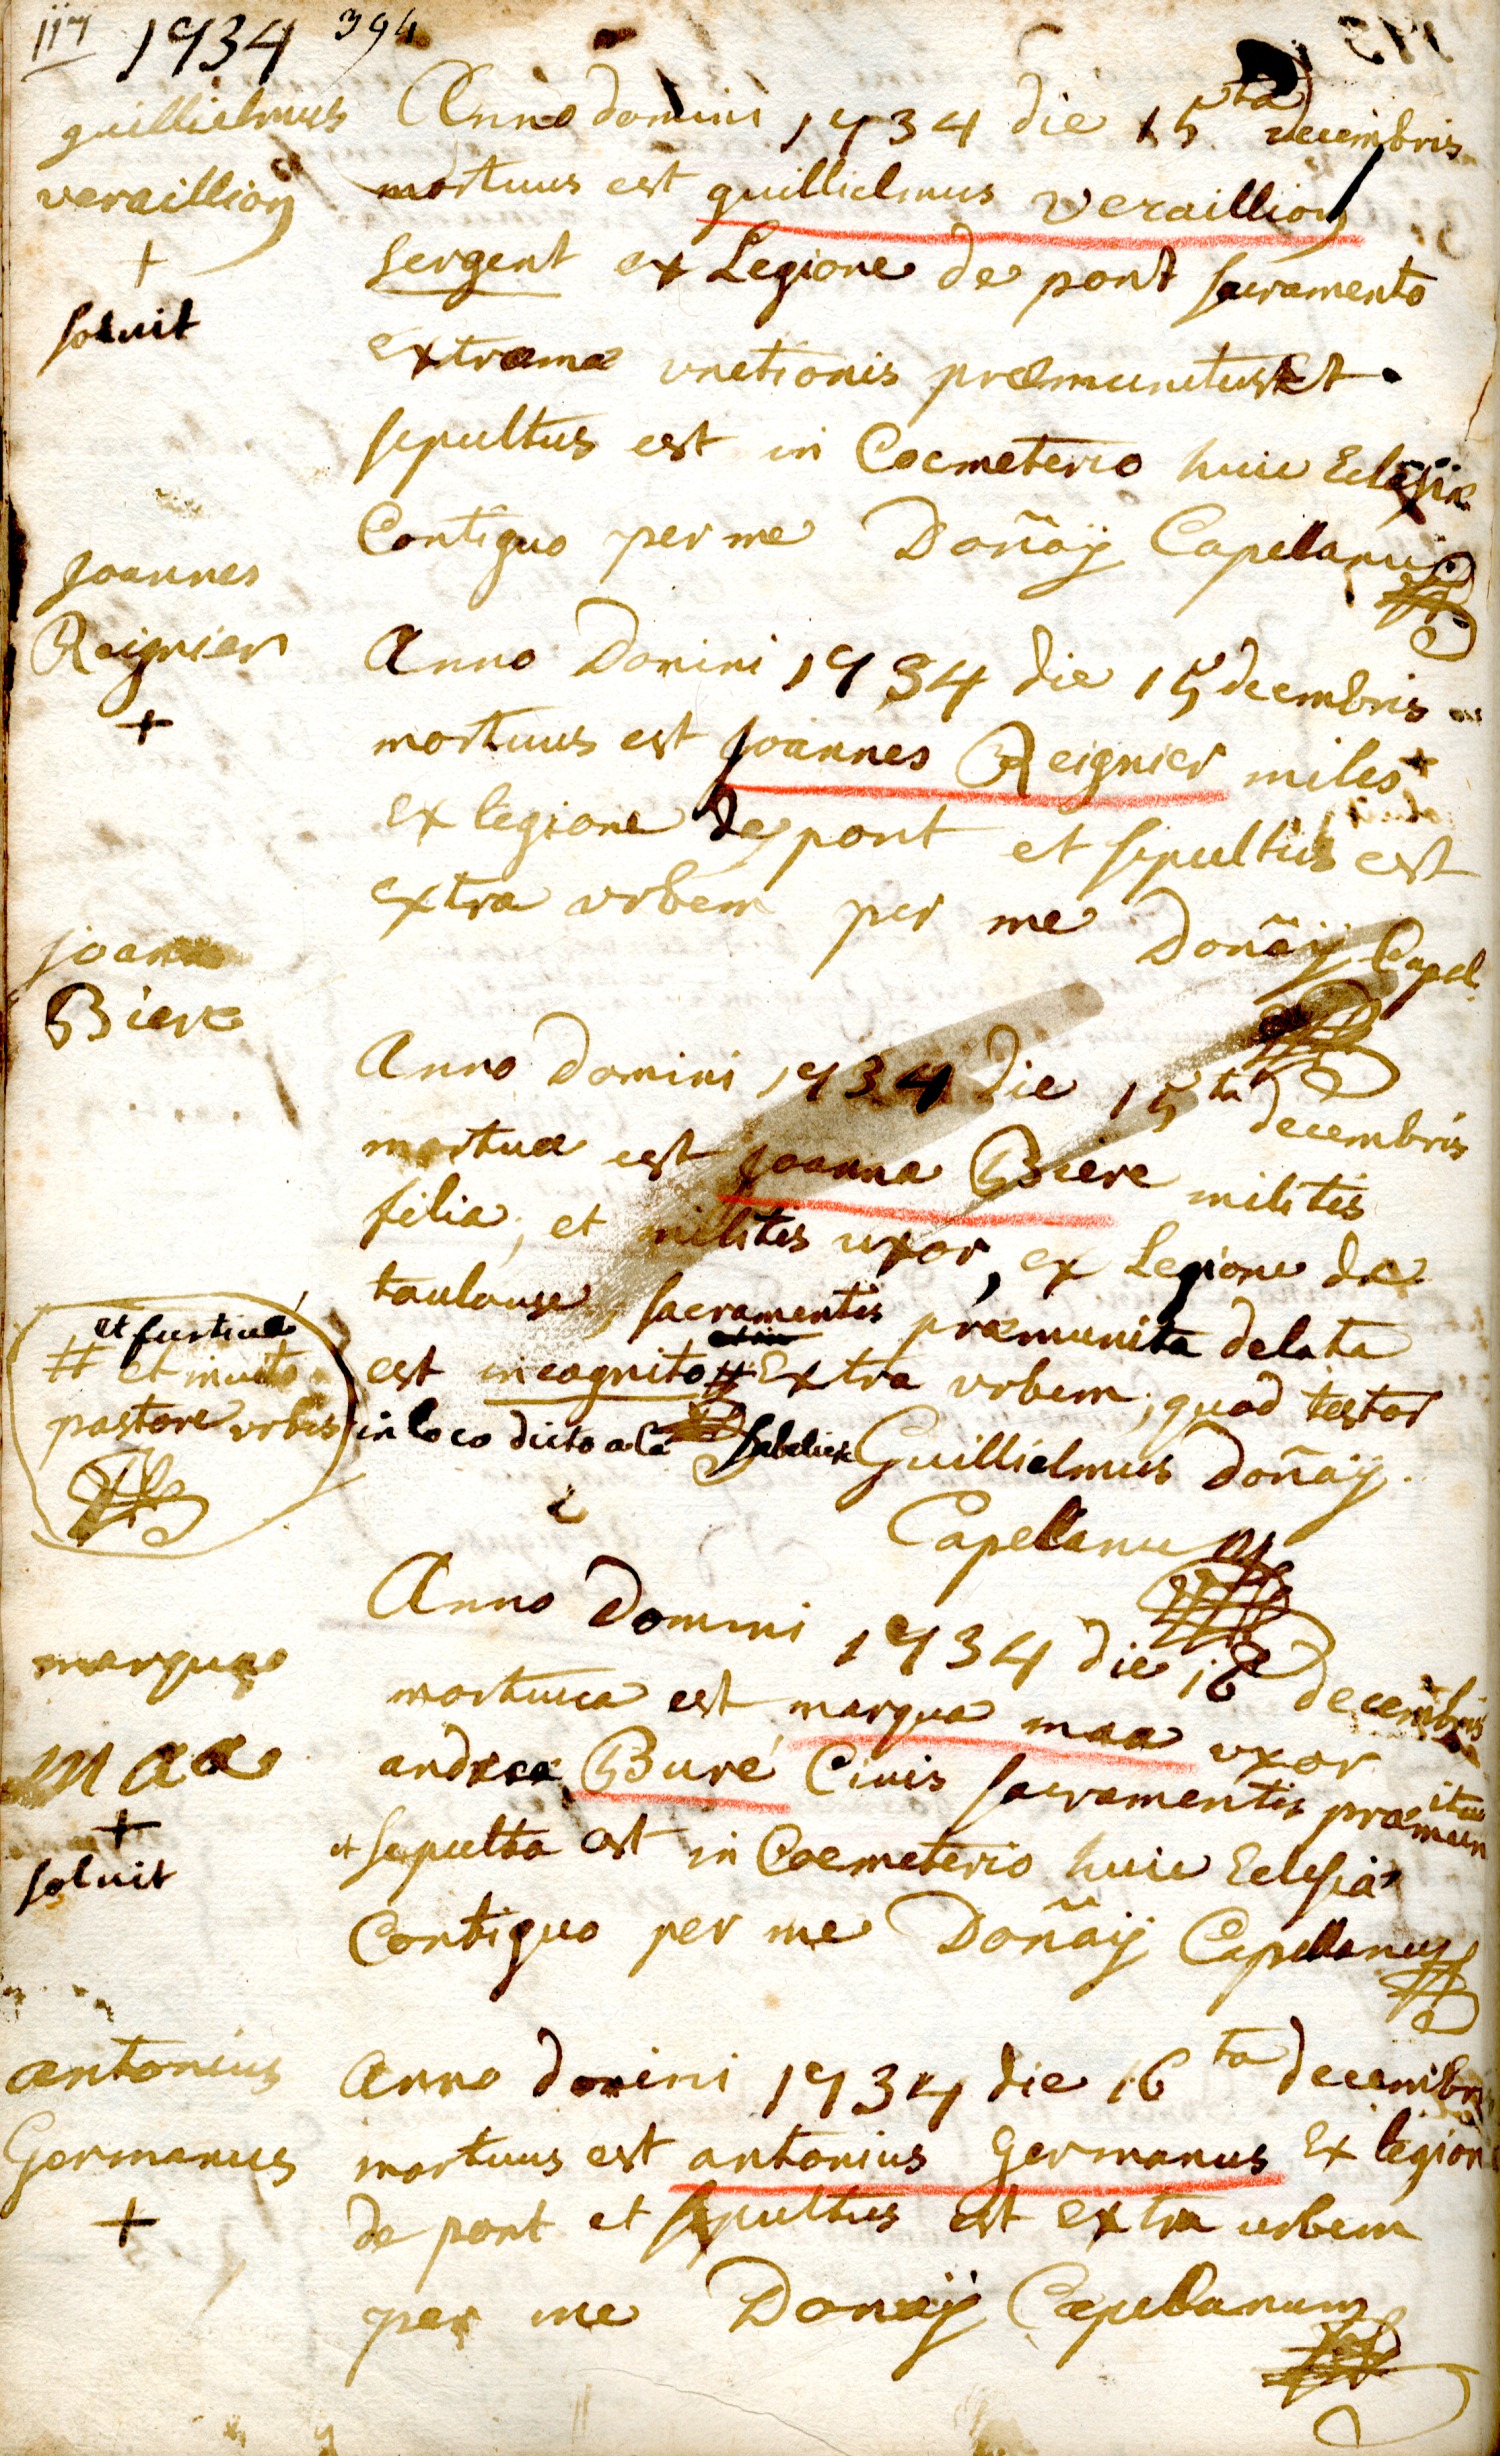 1734 394
guillielmus
veraillion
+
soluit
Anno domini 1734 die 15ta decembris
mortuus est guillielmus veraillion
sergent ex Legione de pont sacramento
extremæ unctionis præmunitus et
sepultus est in Coemeterio huic Eclesiæ
Contiguo per me Doñaÿ Capelanus
Joannes
Reignier
+
Anno Domini 1734 die 15 decembris
mortuus est Joannes Reignier miles
ex legione de pont et sepultus est
extra urbem per me Doñaÿ Capel.
joanna
Biere
Anno Domini 1734 die 15ta decembris
mortua est joanna Biere militis
filia, et militis uxor, ex Legione de
toulouse, sacramentis præmunita delata
est incognito # Extra urbem, quod testor
in loco dicto a la Guillielmus Doñaÿ
Capellanus
et furtive
# et invito
pastore urbis
marqua
maa
+
soluit
Anno Domini 1734 die 16 decembris
mortua est marqua maa uxor
andreæ Buré Civis sacramentis præmun
ita
et sepulta est in Coemeterio huic Eclesiæ
Contiguo per me Doñaÿ Capellanus
antonius
Germanus
+
Anno domini 1734 die 16ta decembris
mortuus est antonius Germanus Ex legione
de pont et sepultus est extra urbem
per me Donaÿ Capelanum